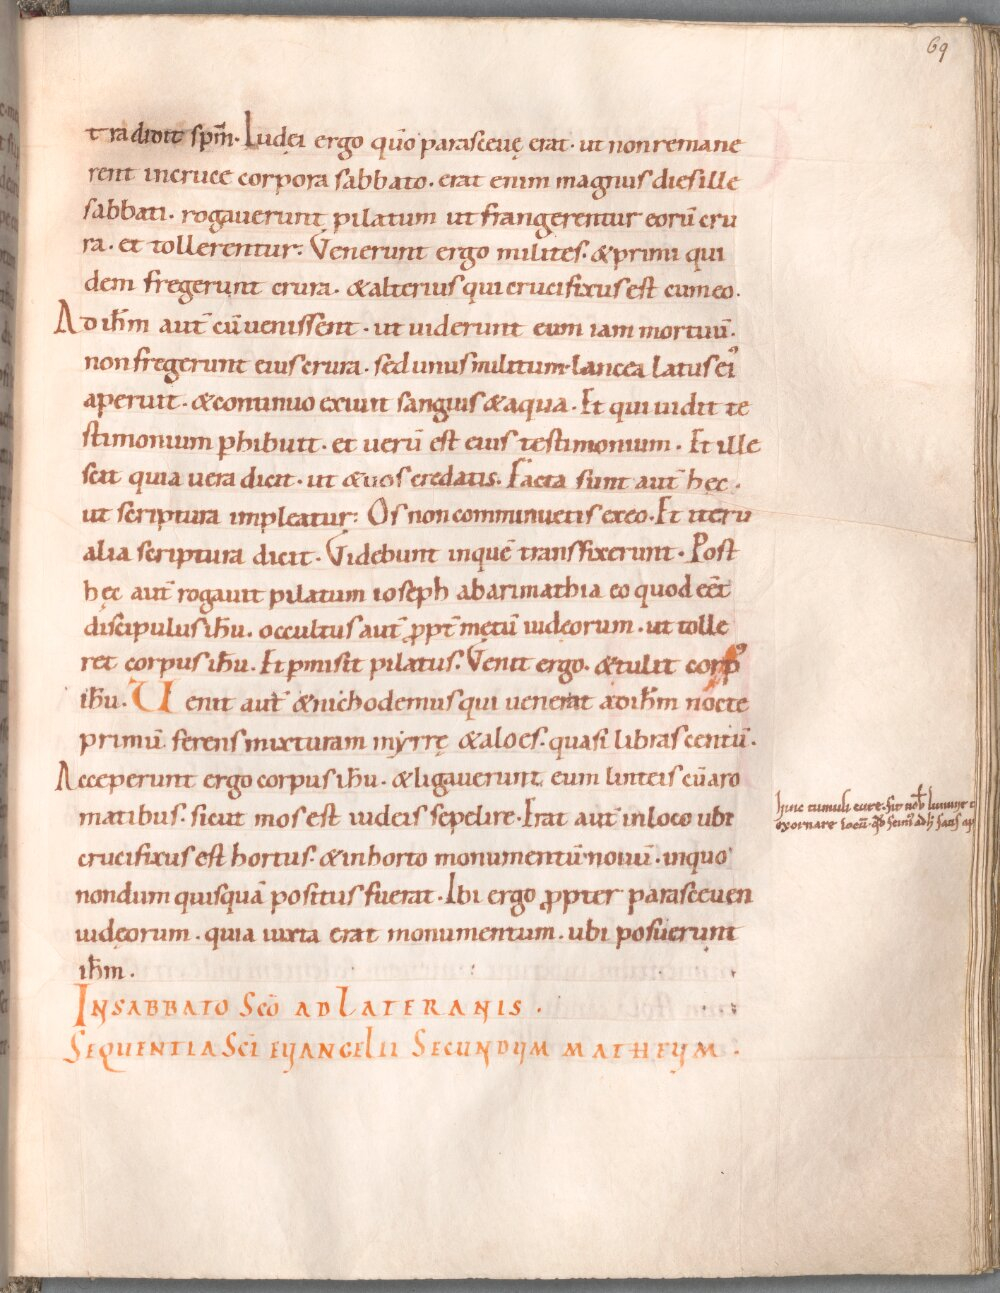 69
tradidit sp̄m. Iudęi ergo qūo parasceuę erat. ut non remane
rent in cruce corpora sabbato. erat enim magnus dies ille
sabbati. rogauerunt pilatum ut frangerentur eorū cru
ra. et tollerentur. Venerunt ergo milites. & primi qui
dem fregerunt crura. & alterius qui crucifixus est cum eo.
Ad ih̄m aut̄ cū uenissent. ut uiderunt eum iam mortuū.
non fregerunt eius crura. sed unus militum lancea latus ei᾿
aperuit. & continuo exiuit sanguis & aqua. Et qui uidit te
stimonium phibuit. et uerū est eius testimonium. Et ille
scit quia uera dicit. ut & uos credatis. Facta sunt aut̄ hęc.
ut scriptura impleatur. Os non comminuetis ex eo. Et iterū
alia scriptura dicit. Videbunt in quē transfixerunt. Post
hęc aut̄ rogauit pilatum ioseph abarimathia eo quod eēt
discipulus ih̄u. occultus aut̄ ꝓpt̄ mętū iudęorum. ut tolle
ret corpus ih̄u. Et pmisit pilatus. Venit ergo. & tulit corp᾿
ih̄u. Uenit aut̄ & nichodemus qui uenerat ad ih̄m nocte
primū ferens mixturam myrrę & aloes. quasi libras centū.
Acceperunt ergo corpus ih̄u. & ligauerunt eum linteis cū aro
matibus. sicut mos est iudeis sepelire. Erat aut̄ in loco ubi
crucifixus est hortus. & in horto monumentū nouū. in quo
nondum quisquā positus fuerat. Ibi ergo ꝓpter parasceuen
iudęorum. quia iuxta erat monumentum. ubi posuerunt
ih̄m.
IN SABBATO SC̄O AD LATERANIS.
SEQUENTIA SC̄I EVANGELII SECUNDVM MATHEVM.
tumuli
exornare locū.